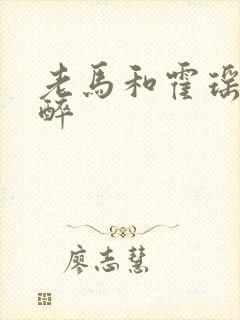 老馬和霍瑶
醉
廖志慧